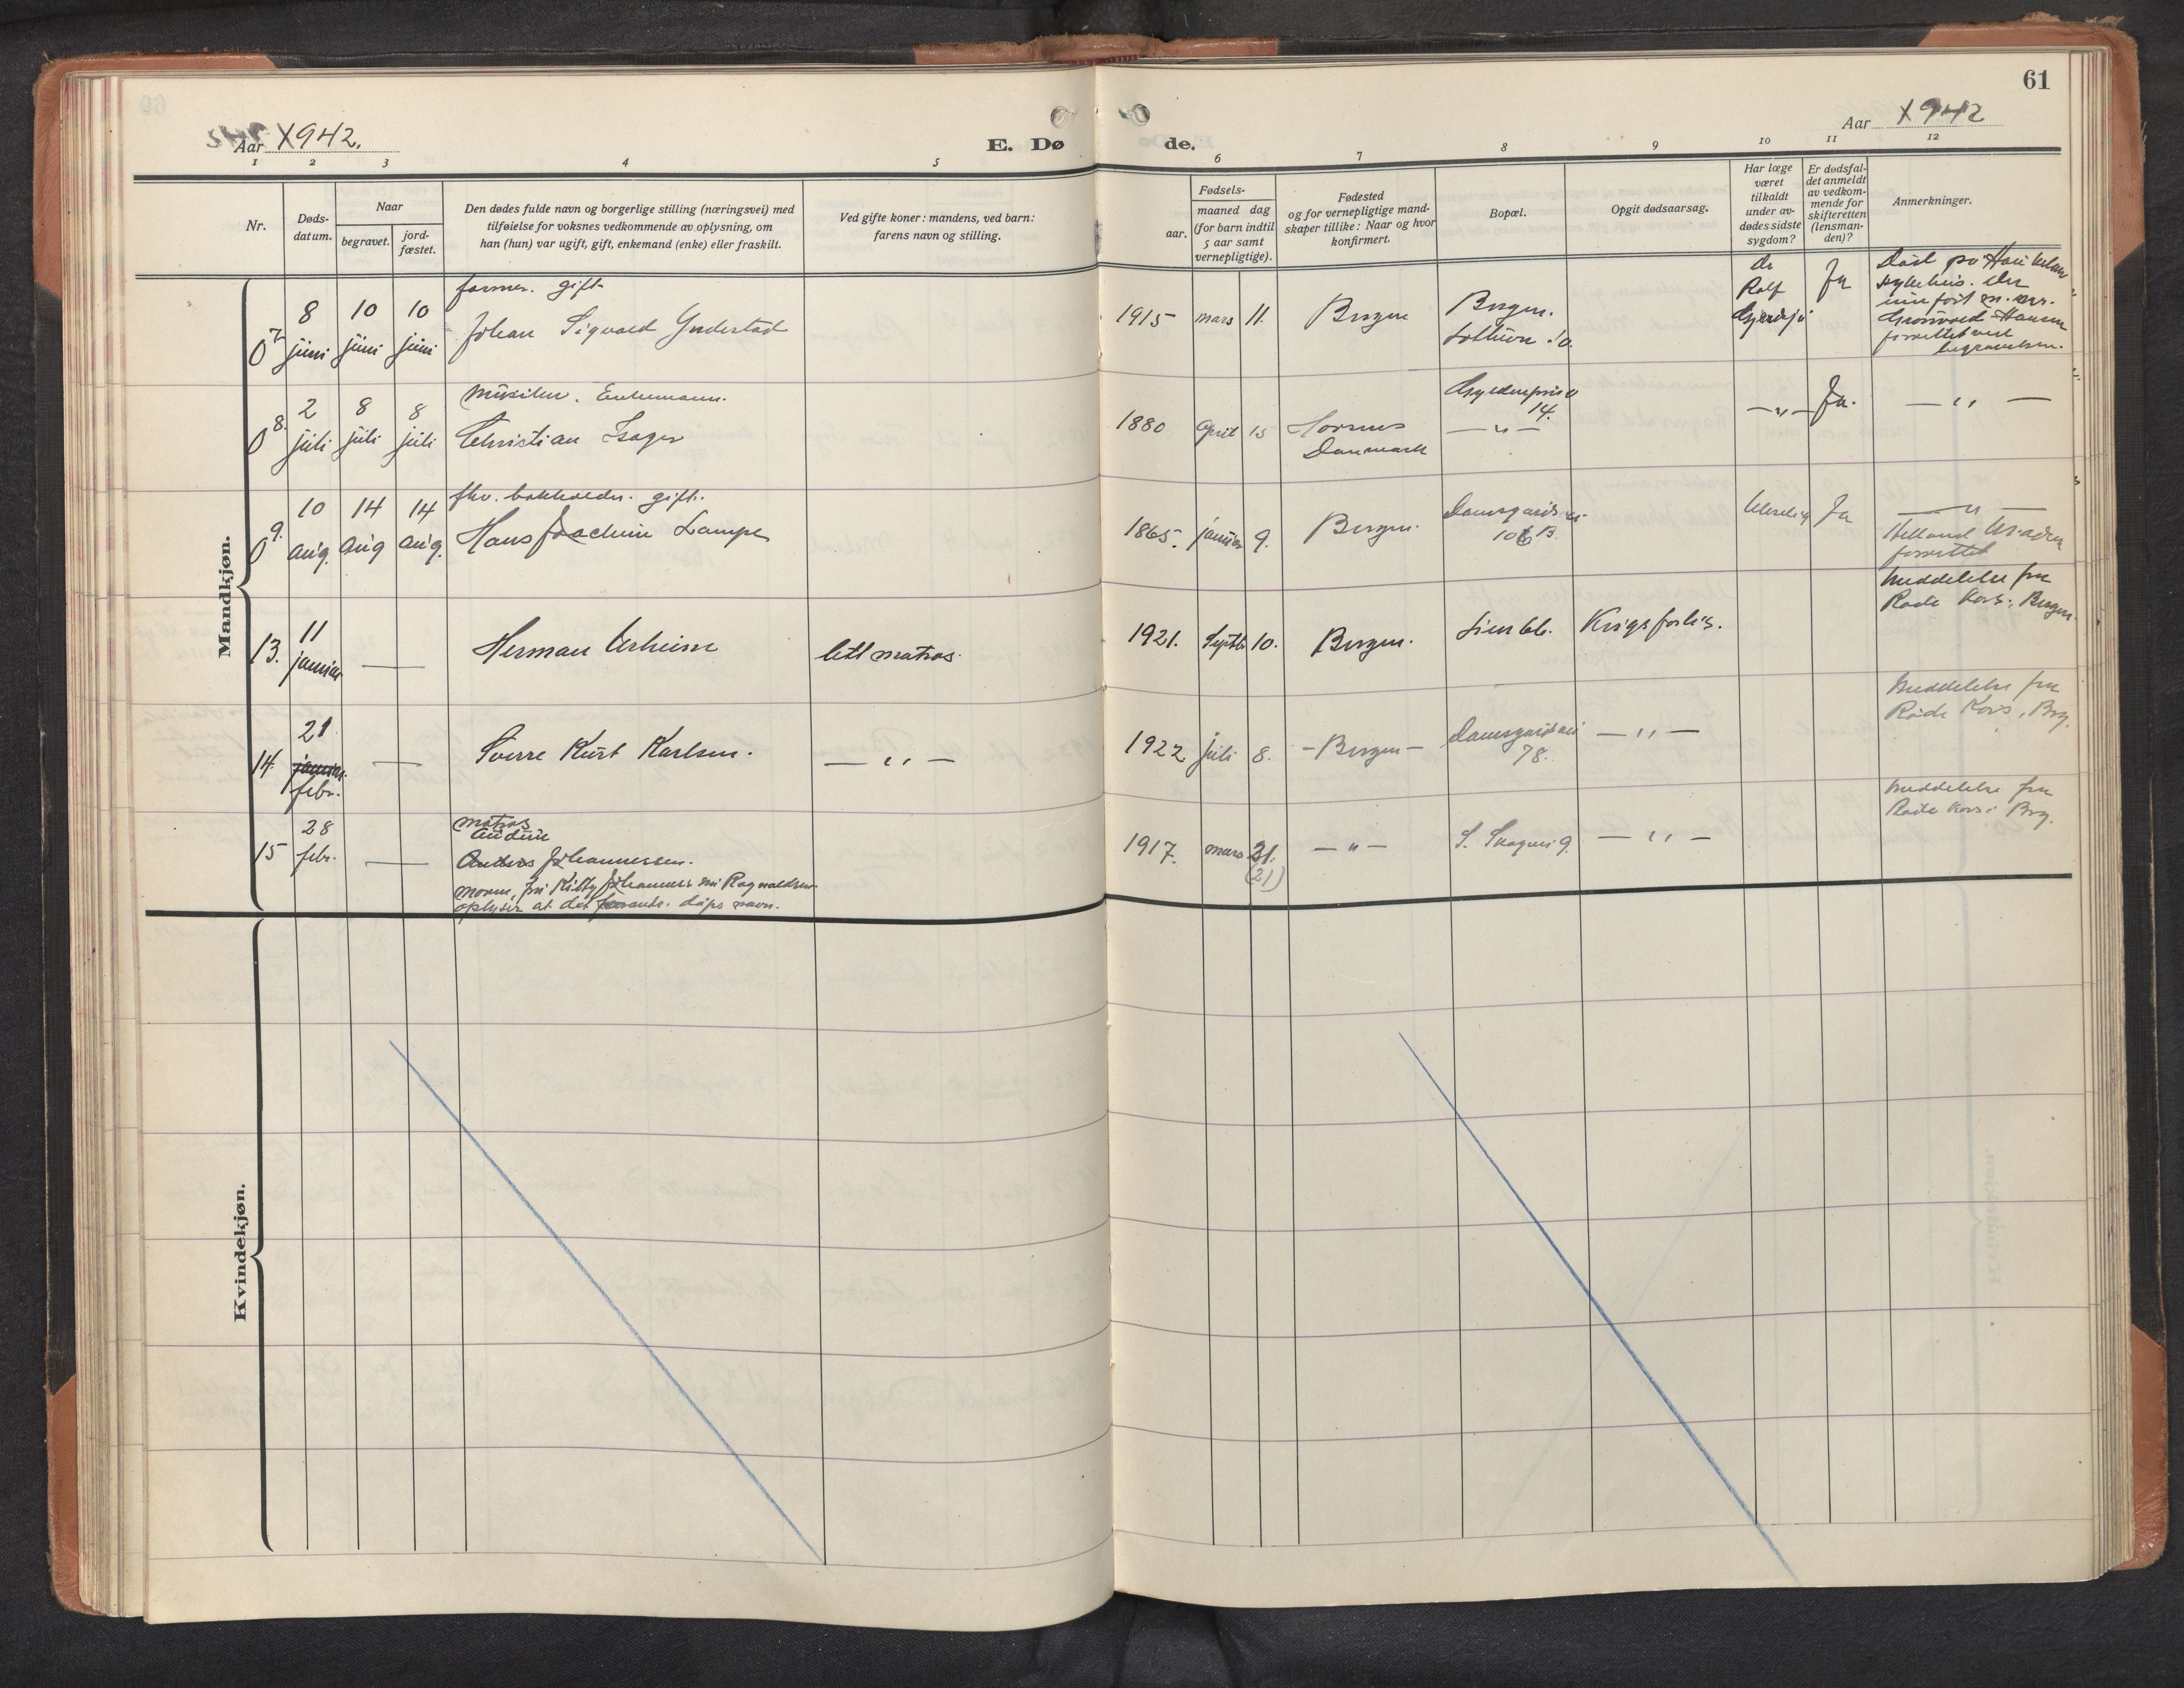 61
Aar X942.
E. Dø
de.
Aar X942
1 2 3 4 5 6 7 8 9 10 11 12
Nr.
Døds-
datum.
Naar
begravet.
jord-
fæstet.
Den dødes fulde navn og borgerlige stilling (næringsvei) med
tilføielse for voksnes vedkommende av oplysning, om
han (hun) var ugift, gift, enkemand (enke) eller fraskilt.
Ved gifte koner: mandens, ved barn:
farens navn og stilling.
aar.
Fødsels-
maaned dag
(for barn indtil
5 aar samt
vernepligtige).
Fødested
og for vernepligtige mand-
skaper tillike: Naar og hvor
konfirmert.
Bopæl.
Opgit dødsaarsag.
Har læge
været
tilkaldt
under av-
dødes sidste
sygdom?
Er dødsfal-
det anmeldt
av vedkom-
mende for
skifteretten
(lensman-
den)?
Anmerkninger.
Mandkjøn.
7.
0
8 juni
10 juni
10 juni
former. gift
Johan Sigvald Yndestad
1915 mars 11.
Bergen
Bergen.
dr
Rolf
Ja
Død på Haukeland
sykehus. Der
Grønvold-Hansen
forrettet ved
begravelsen.
8.
0
2 juli
8 juli
8 juli
musiker. Enkemann.
Christian Isager
1880 April 15
Danmark
Gyldenpris
14.
— " —
— " —
Ja.
— " —
9.
0
10 aug.
14 aug
14 aug.
fhv. bokholder. gift.
Hans Joachim Lampe
1865. januar 9.
Bergen.
Damsgårdsvei
106 B.
Ja
— " —
forrettet
13.
11 januar
—
Herman Arheim
lett matros.
1921. Septb. 10.
Bergen.
Krigsforlis.
Meddelelse fra
Røde Kors, Bergen.
14.
21
januar
febr.
—
Sverre Kurt Karlsen.
— " —
1922 juli 8.
- Bergen -
Damsgårdsvei
78.
— " —
Meddelelse fra
Røde Kors, Brg.
15
28 febr.
—
matros
Audun
Anders Johannessen.
moren, fru Kitty Johannes. née Ragnvaldsen
oplyser at det er hans døps navn.
1917. mars 21.
(21)
— " —
— " —
Meddelelse fra
Røde Kors. Brg.
Kvindekjøn.